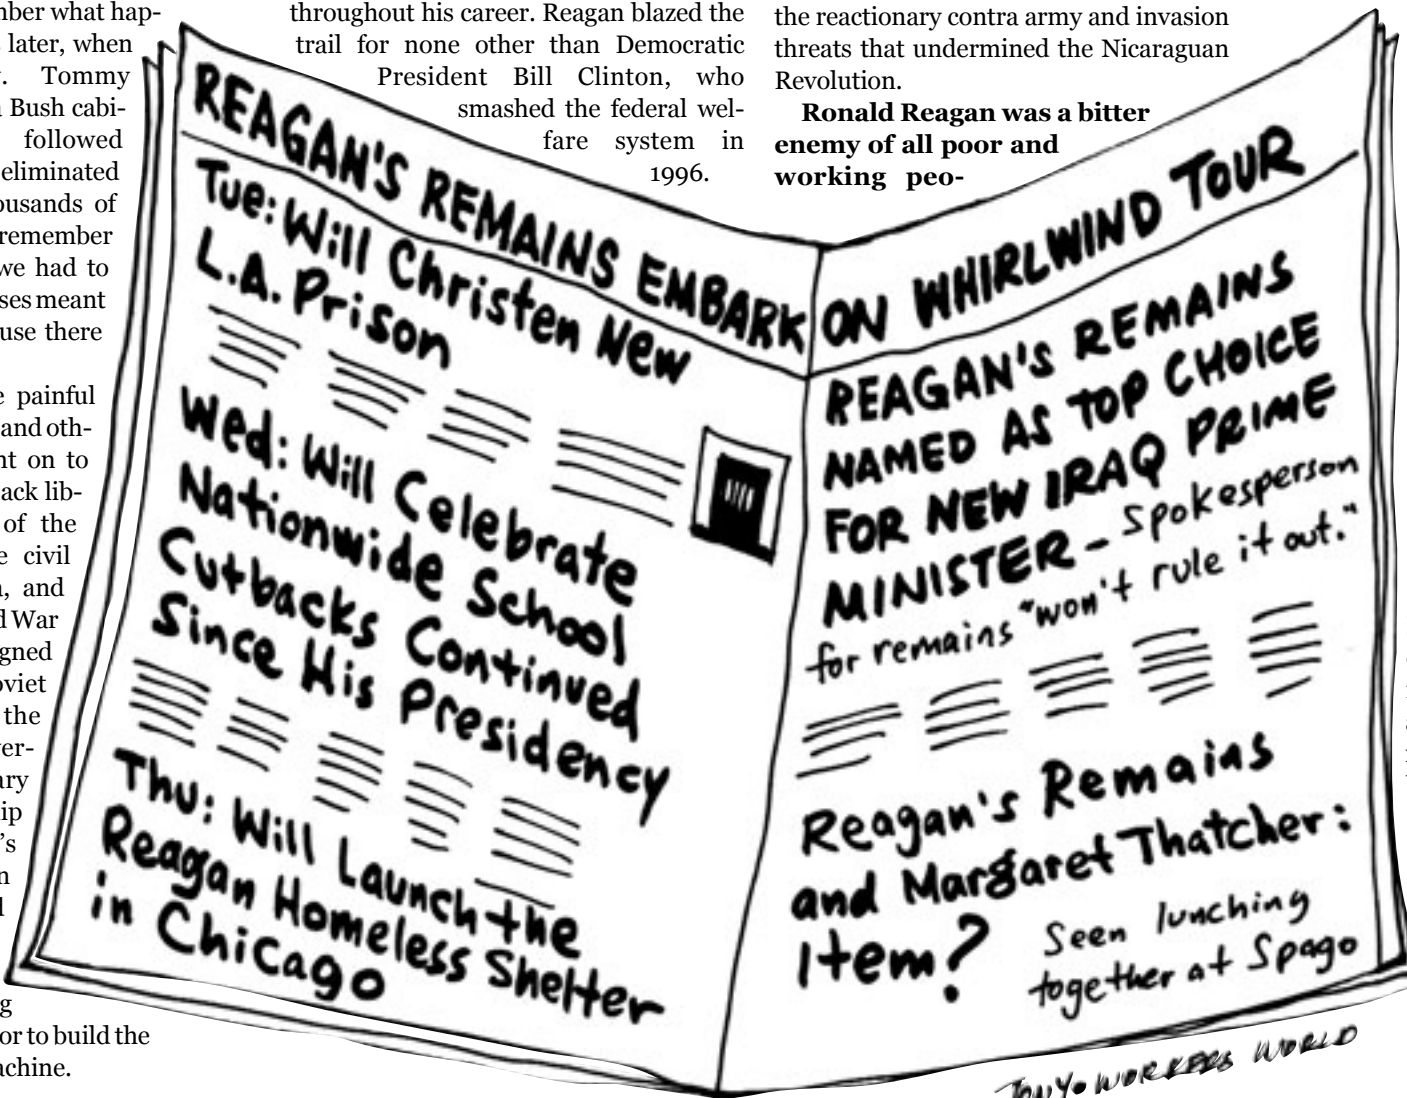 mber what hap-
later, when
Tommy
Bush cabi-
followed
eliminated
ousands of
remember
we had to
ses meant
use there
painful
and oth-
nt on to
lack lib-
of the
e civil
, and
d War
gned
oviet
the
ver-
ary
ip
's
n
l
g
or to build the
achine.
throughout his career. Reagan blazed the
trail for none other than Democratic
President Bill Clinton, who
smashed the federal wel-
fare system in
1996.
the reactionary contra army and invasion
threats that undermined the Nicaraguan
Revolution.
Ronald Reagan was a bitter
enemy of all poor and
working peo-
REAGAN'S REMAINS EMBARK ON WHIRLWIND TOUR
Tue: Will Christen New
L.A. Prison
Wed: Will Celebrate
Nationwide School
Cutbacks Continued
Since His Presidency
Thu: Will Launch the
Reagan Homeless Shelter
in Chicago
REAGAN'S REMAINS
NAMED AS TOP CHOICE
FOR NEW IRAQ PRIME
MINISTER - Spokesperson
for remains "won't rule it out."
Reagan's Remains
and Margaret Thatcher:
Item?
Seen lunching
together at Spago
TONYO WORKERS WORLD